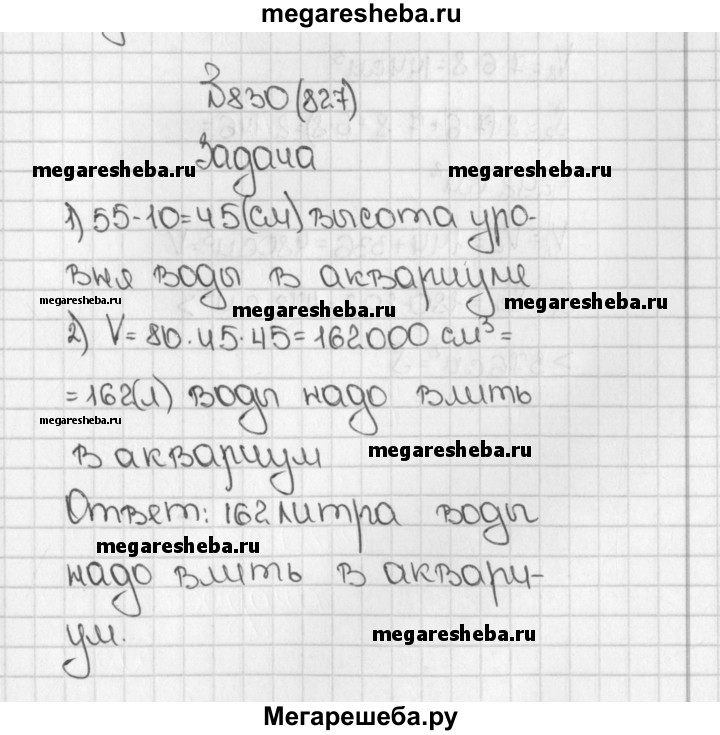 megaresheba.ru
№830(827)
Задача
megaresheba.ru
megaresheba.ru
1) 55-10=45(см) высота уро-
вня воды в аквариуме
megaresheba.ru
megaresheba.ru
megaresheba.ru
2) V=80·45·45=162000 см³=
=162(л) воды надо влить
megaresheba.ru
в аквариум
megaresheba.ru
Ответ: 162 литра воды
megaresheba.ru
надо влить в аквари-
ум.
megaresheba.ru
Мегарешеба.ру